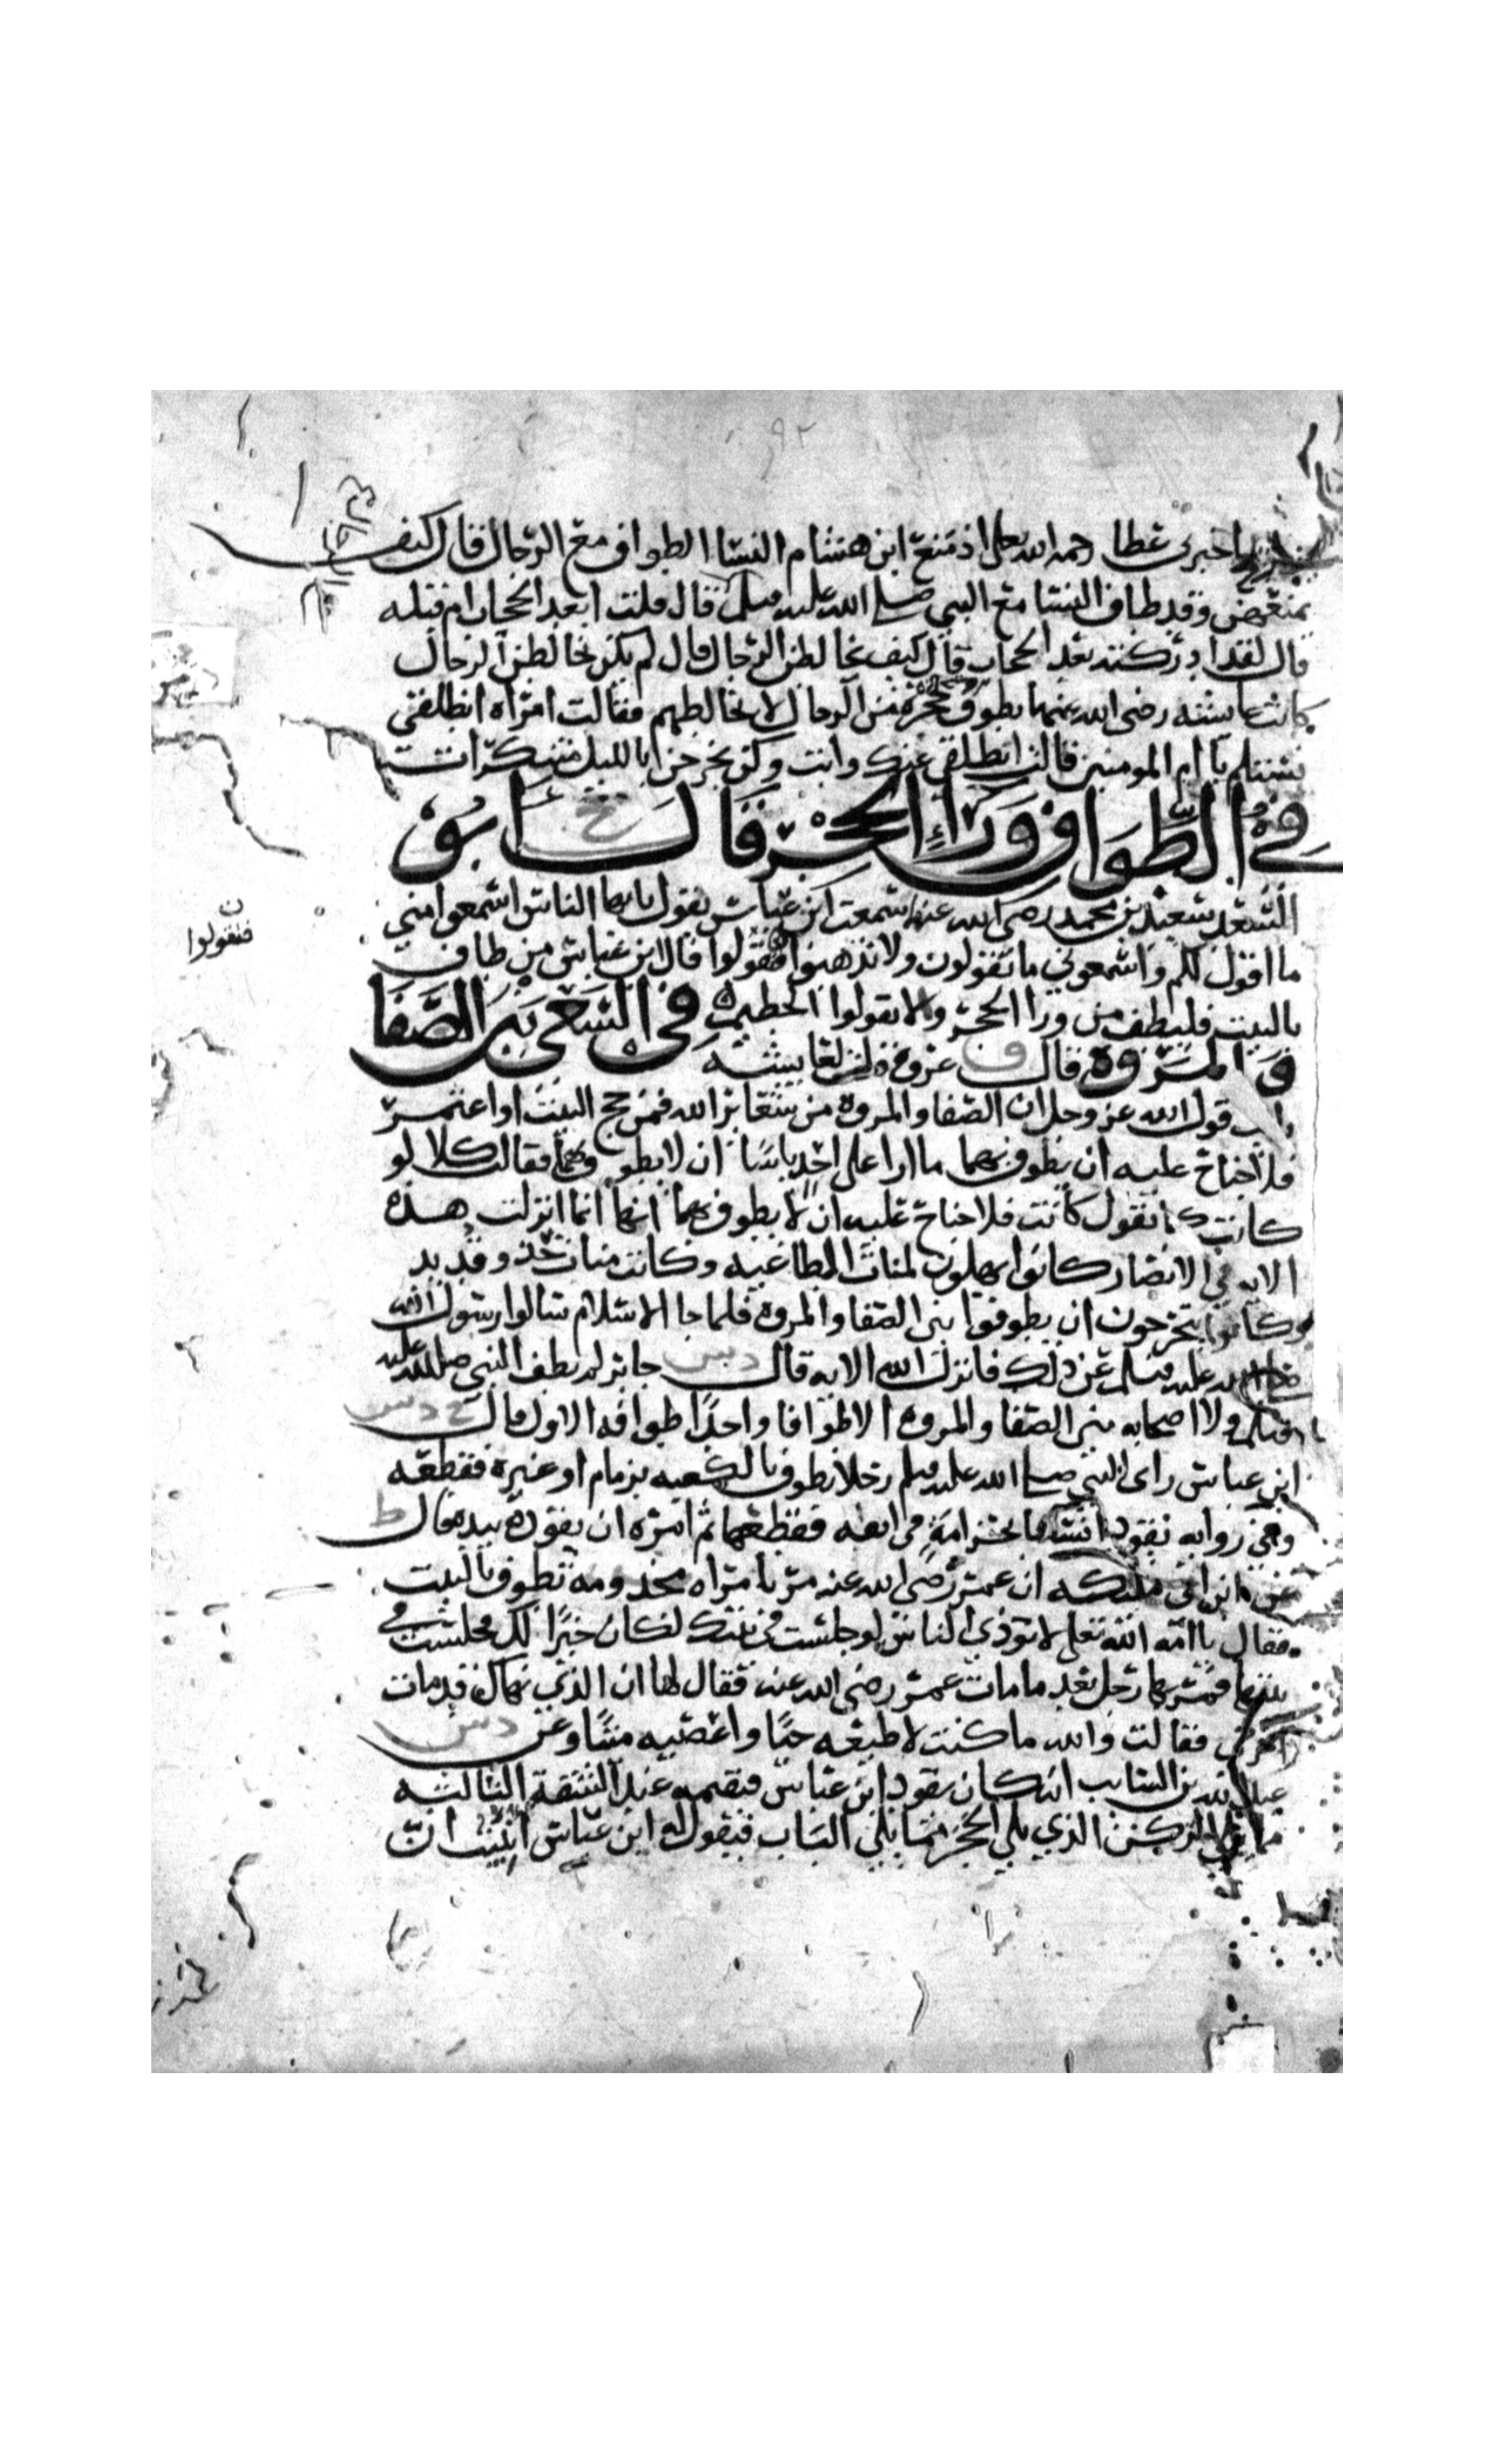 ٩٢
اخبرنى عطا رحمه الله تعلى اذ منع ابن هشام النسا الطواف مع الرجال قال كيف
يمنعهن وقد طاف النسا مع النبي صلى الله عليه وسلم قال قلت ابعد الحجاب ام قبله
قال لقد ادركته بعد الحجاب قال كيف يخالطن الرجال قال لم يكن يخالطن الرجال
كانت عايشه رضى الله عنها تطوف حجزه من الرجال لا تخالطهم فقالت امراه انطلقي
نستلم يا ام المومنين قالت انطلقي عنك وابت وكن يخرجن بالليل متنكرات
في الطواف ورا الحجر قال خ ابو
السعد سعيد بن محمد رضى الله عنه سمعت ابن عباس يقول يا ايها الناس اسمعوا مني
ما اقول لكم واسمعوني ما تقولون ولا تذهبوا فتقولوا قال ابن عباس من طاف
فتقولوا
بالبيت فليطف من ورا الحجر ولا تقولوا الحطيم في السعي بين الصفا
والمروة قال ق عروة قلت لعايشه
قول الله عز وجل ان الصفا والمروه من شعاير الله فمن حج البيت او اعتمر
فلا جناح عليه ان يطوف بهما ما ارا على احد باسا ان لا يطوف بهما فقالت كلا لو
كانت كما تقول كانت فلا جناح عليه ان لا يطوف بهما انها انما انزلت هذه
الايه في الانصار كانوا يهلون لمنات الطاغيه وكانت منات حذو قديد
وكانوا يتحرجون ان يطوفوا بين الصفا والمروه فلما جا الاسلام سالوا رسول الله
صلى الله عليه وسلم عن ذلك فانزل الله الايه قال د س جابر لم يطف النبي صلى الله عليه
وسلم ولا اصحابه بين الصفا والمروه الا طوافا واحدا طوافه الاول قال خ د س
ابن عباس راى النبي صلى الله عليه وسلم رجلا يطوف بالكعبه بزمام او غيره فقطعه
وفي روايه يقود انسانا بخزامة في انفه فقطعها ثم امره ان يقوده بيده قال ط
عن ابن ابي مليكه ان عمر رضى الله عنه مر بامراه مجذومه تطوف بالبيت
فقال يا امه الله تعلى لا توذي الناس لو جلست في بيتك لكان خيرا لك فجلست في
بيتها فمر بها رجل بعد ما مات عمر رضى الله عنه فقال لها ان الذي نهاك قد مات
اخرجي فقالت والله ما كنت لاطيعه حيا واعصيه ميتا وعن د س
عبد الله بن السايب انه كان يقود ابن عباس فيقيمه عند الشقة الثالثه
مما يلي الركن الذي يلي الحجر مما يلي الباب فيقول له ابن عباس انبيت ان